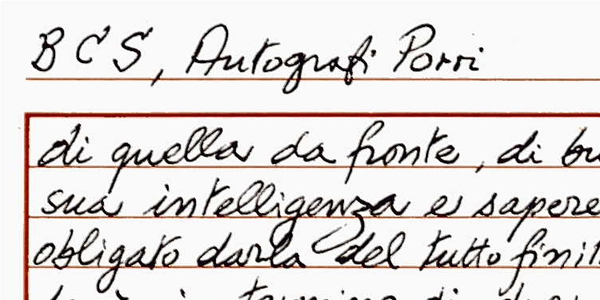 BCS, Autografi Porri
di quella da fronte, di bu
sua intelligenza e sapere
obligato darla del tutto finit
termine di